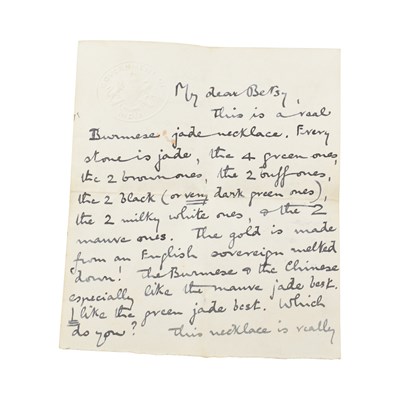 My dear Betsy,
This is a real
Burmese jade necklace. Every
stone is jade, the 4 green ones,
the 2 brown ones, the 2 buff ones,
the 2 black (or very dark green ones),
the 2 milky white ones, & the 2
mauve ones. The gold is made
from an English sovereign melted
down! The Burmese & the Chinese
especially like the mauve jade best.
I like the green jade best. Which
do you? This necklace is really